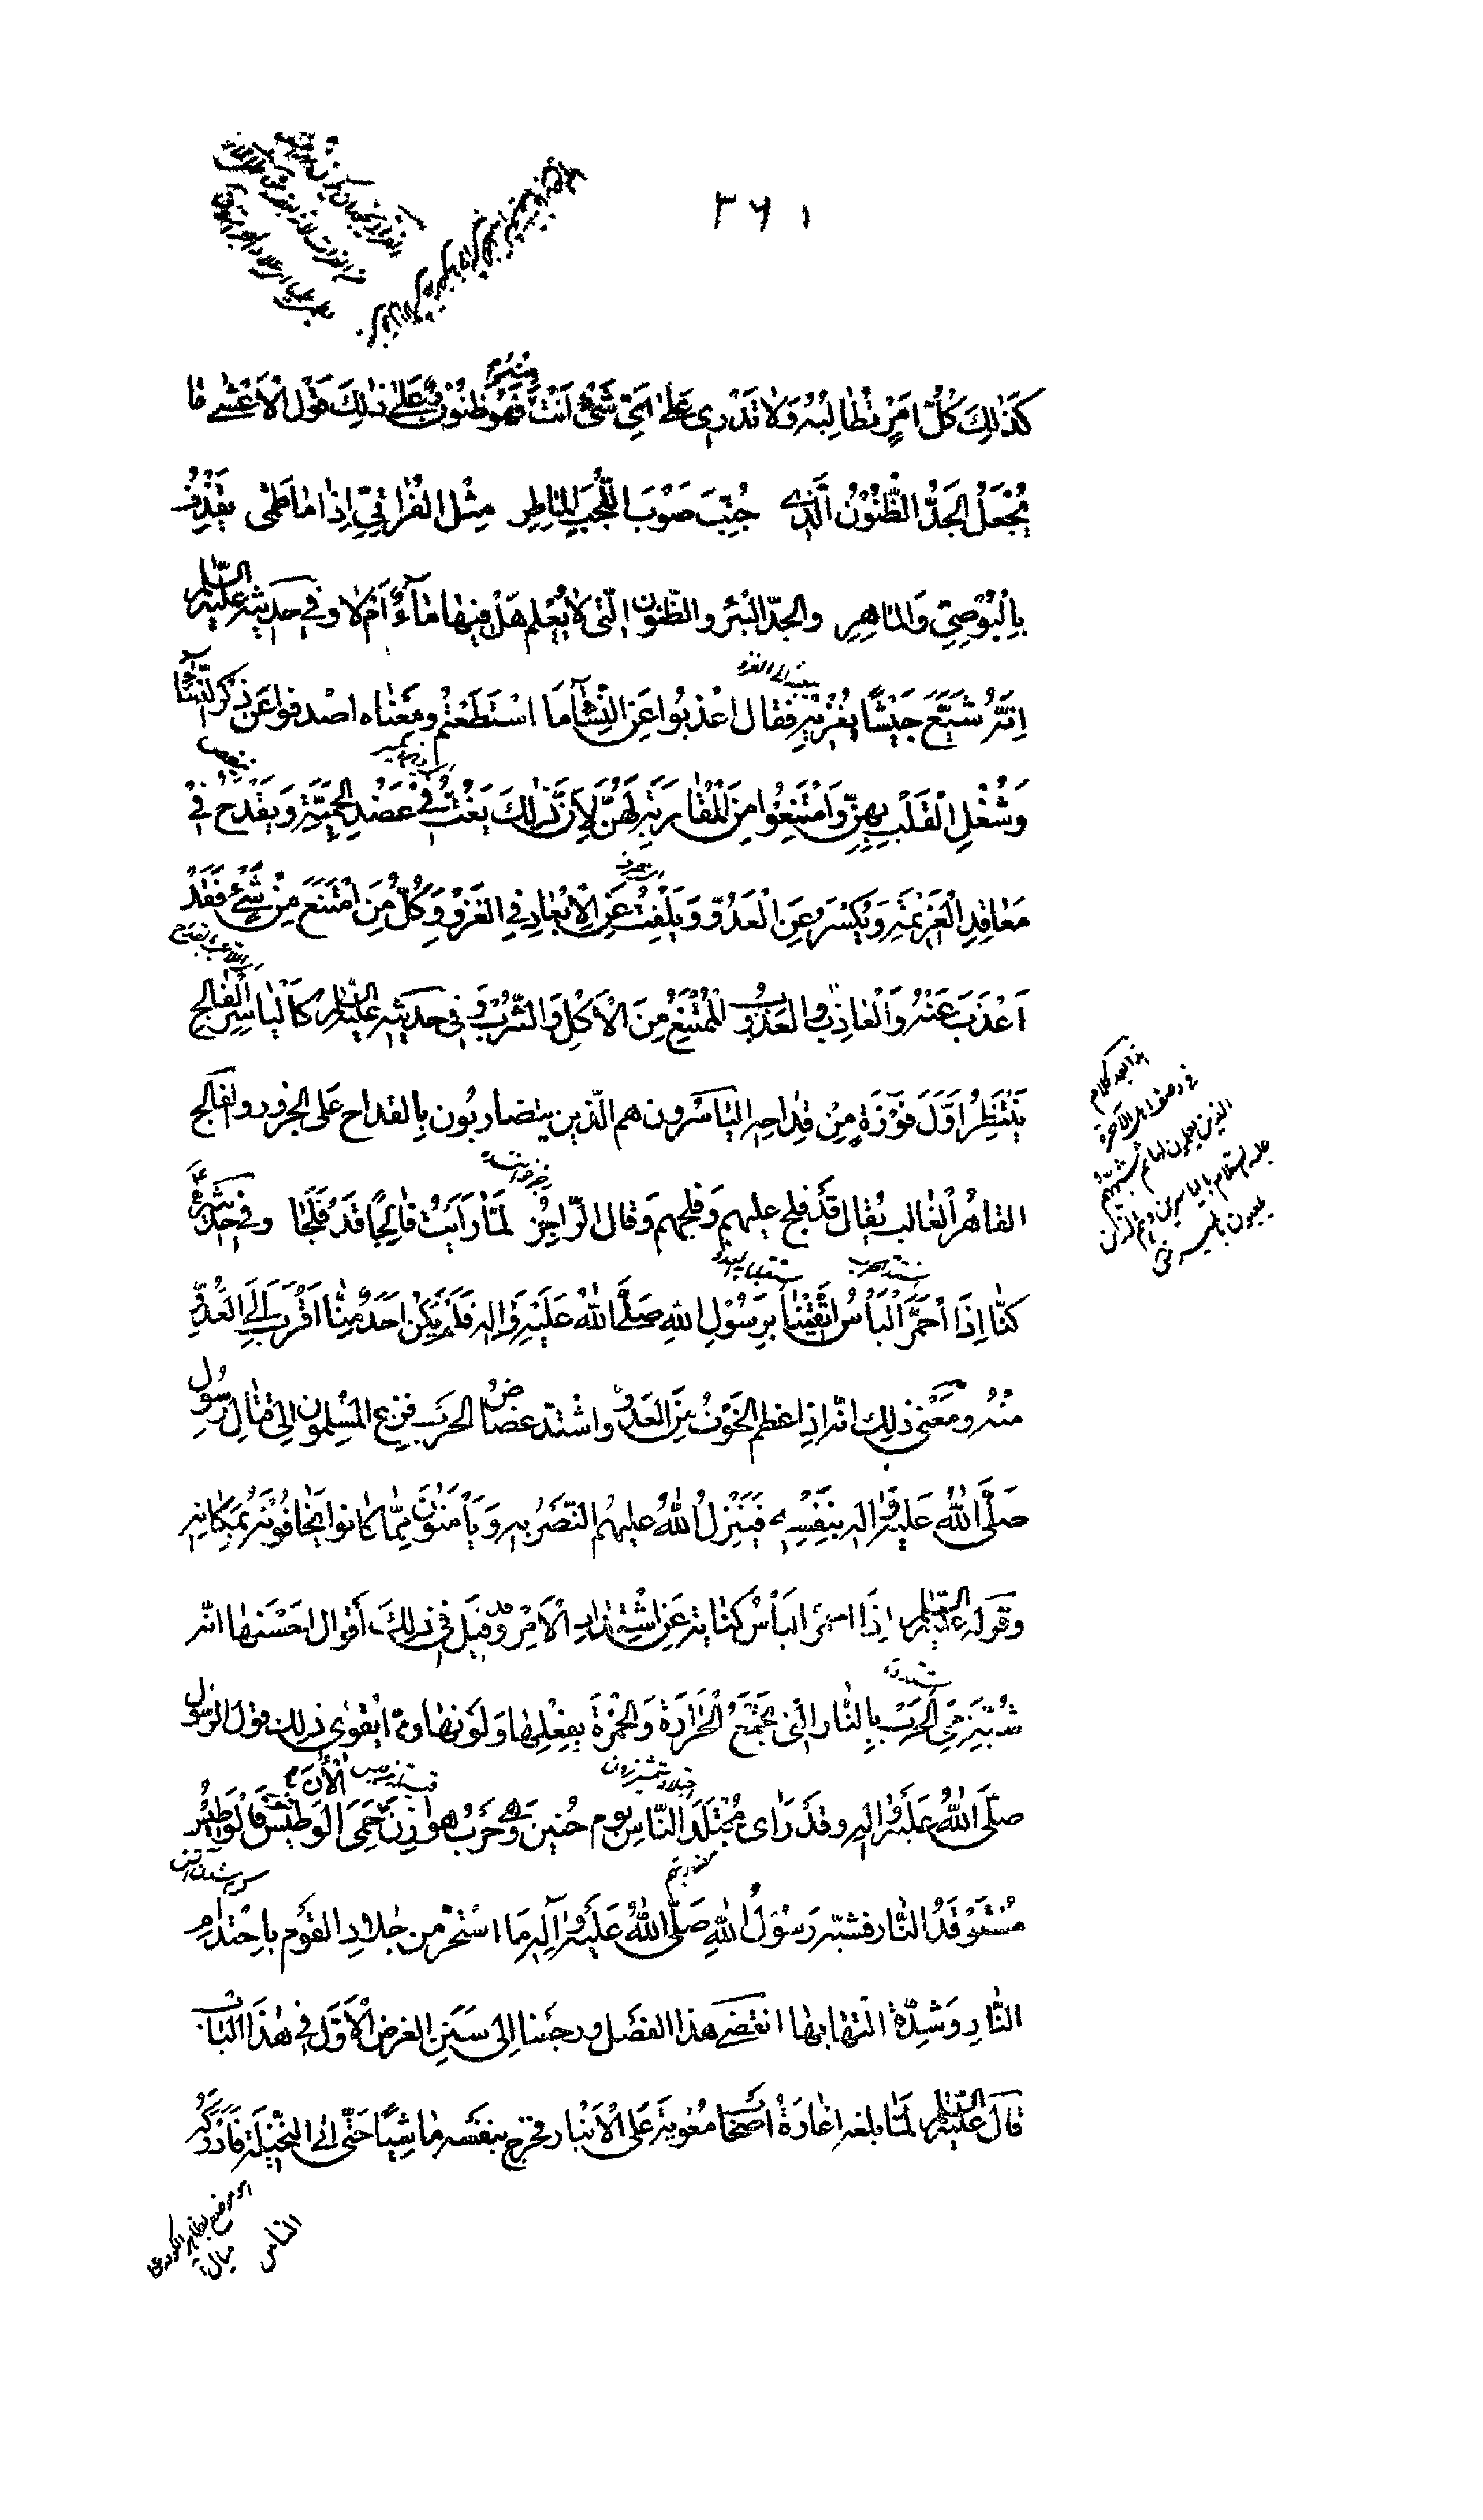 ٢٦١
كَذٰلِكَ كُلُّ اَمْرٍ تُطَالِبُهُ وَلَا تَدْرِي عَلىٰ اَيِّ شَيْءٍ اَنْتَ مِنْهُ فَهُوَ ظَنُوْنٌ وَعَلىٰ ذٰلِكَ قَوْلُ الْاَعْشٰى مَا
يُجْعَلُ الجُدُّ الظَّنُوْنُ الَّذِي جُنِّبَ صَوْبَ اللَّجِبِ المَاطِرِ مِثْلَ الفُرَاتِيِّ اِذَا مَا طَمٰى يَقْذِفُ
بِالْبُوْصِيِّ وَالمَاهِرِ والجدّ البئر والظّنون الّتى لا يُعْلم هَلْ فيها مَاءٌ اَمْ لا وفي حديثه عليه السّلام
اِنَّهُ شَيَّعَ جَيْشًا يُغْزِيْهِ فقال اعْذِبُوا عَنِ النِّسَاءِ مَا اسْتَطَعْتُمْ ومعناه اصْدِفوا عَنْ ذِكْرِ النِّسَاءِ
وَشُغْلِ الْقَلْبِ بِهِنَّ وَامْتَنِعُوا مِنَ الْمُقَارَبَةِ لَهُنَّ لِاَنَّ ذٰلِكَ يَفُتُّ فِيْ عَضُدِ الحَمِيَّةِ وَيَقْدَحُ فِيْ
مَعَاقِدِ الْعَزِيمَةِ وَيَكْسِرُ عَنِ الْعَدْوِ وَيَلْفِتُ عَنِ الْاِبْعَادِ فِي الغَزْوِ وَكُلُّ مَنِ امْتَنَعَ مِنْ شَيْءٍ فَقَدْ
اَعْذَبَ عَنْهُ وَالْعَاذِبُ والعَذُوْبُ الْمُمْتَنِعُ مِنَ الْاَكْلِ وَالشُّرْبِ وَفي حديثه عليه السّلام كَالْيَاسِرِ الْفَالِجِ
يَنْتَظِرُ اَوَّلَ فَوْزَةٍ مِنْ قِدَاحِهِ اليَاسَرُون هم الّذين يتضاربُون بِالقداح عَلى الجزور والفالج
القاهر الغالب يُقال قَدْ فلج عليهم وَفلجهم وَقال الرّاجِزُ لَمَّا رَاَيْتُ فَالِجًا قَدْ فَلَجَا وفي حديثه ع
كُنَّا اِذَا احْمَرَّ الْبَأْسُ اتَّقَيْنَا بِرَسُوْلِ اللّٰهِ صَلَّى اللّٰهُ عَلَيْهِ وَاٰلِهِ فَلَمْ يَكُنْ اَحَدٌ مِنَّا اَقْرَبَ اِلَى العَدُوِّ
مِنْهُ ومعنى ذلِكَ انّه اذا عظم الخَوْفُ مِنَ العَدُوِّ واشتدّ عضاضُ الحرب فزع المُسْلِمون اِلى قتال رَسُولِ
صَلَّى اللّٰهُ عَلَيْهِ وَاٰله بنفسه فَيُنْزِلُ اللّٰهُ عليهم النَّصْرَ بهِ وَيَأْمَنُوْنَ مِمَّا كَانوا يَخَافُوْنَهُ بِمَكَانِهِ
وَقوله عليه السّلام اِذَا احمرّ البَأْسُ كنايةٌ عَنِ اشْتِدادِ الْاَمْرِ وقَدْ قيل في ذلِكَ اَقوال احْسَنها انّه
شَبَّهَ حَمْيَ الحَرْبِ بِالنَّار الَّتي تَجْمَعُ الْحَرَارَةَ وَالحُمْرَةَ بِفِعْلِهَا وَلَوْنِهَا وممّا يُقوى ذلك قول الرّسُوْل
صَلَّى اللّٰهُ عَلَيْهِ وَاٰلِهِ وقَدْ رَاى مُجْتَلَدَ النَّاسِ يوم حُنين وَهيَ حَرْبُ هوازِنَ الْاٰنَ حَمِيَ الوَطِيْسُ فَالْوَطِيْسُ
مُسْتَوْقَدُ النَّار فشبّه رَسُوْلُ اللّٰهِ صَلَّى اللّٰهُ عَلَيْهِ وَآلِهِ مَا اسْتَحَرَّ مِن جِلَادِ القَوْمِ باحْتدامِ
النَّارِ وَشِدَّةِ التهابها انقضى هٰذا الفصل ورجعنا اِلى سَنَنِ الغرض الْاَوَّلِ في هٰذَا الْبَاب
قالَ عليه السّلام لَمّا بلغه اغارةُ اَصْحَاب مُعٰوية عَلَى الْاَنْبار فخرج بنفسه ماشِيًا حَتّٰى اَتى النُّخَيْلَةَ فَاَدْرَكَهُ
الناس
هذا بعد كلام
في وصف اهل الآخرة